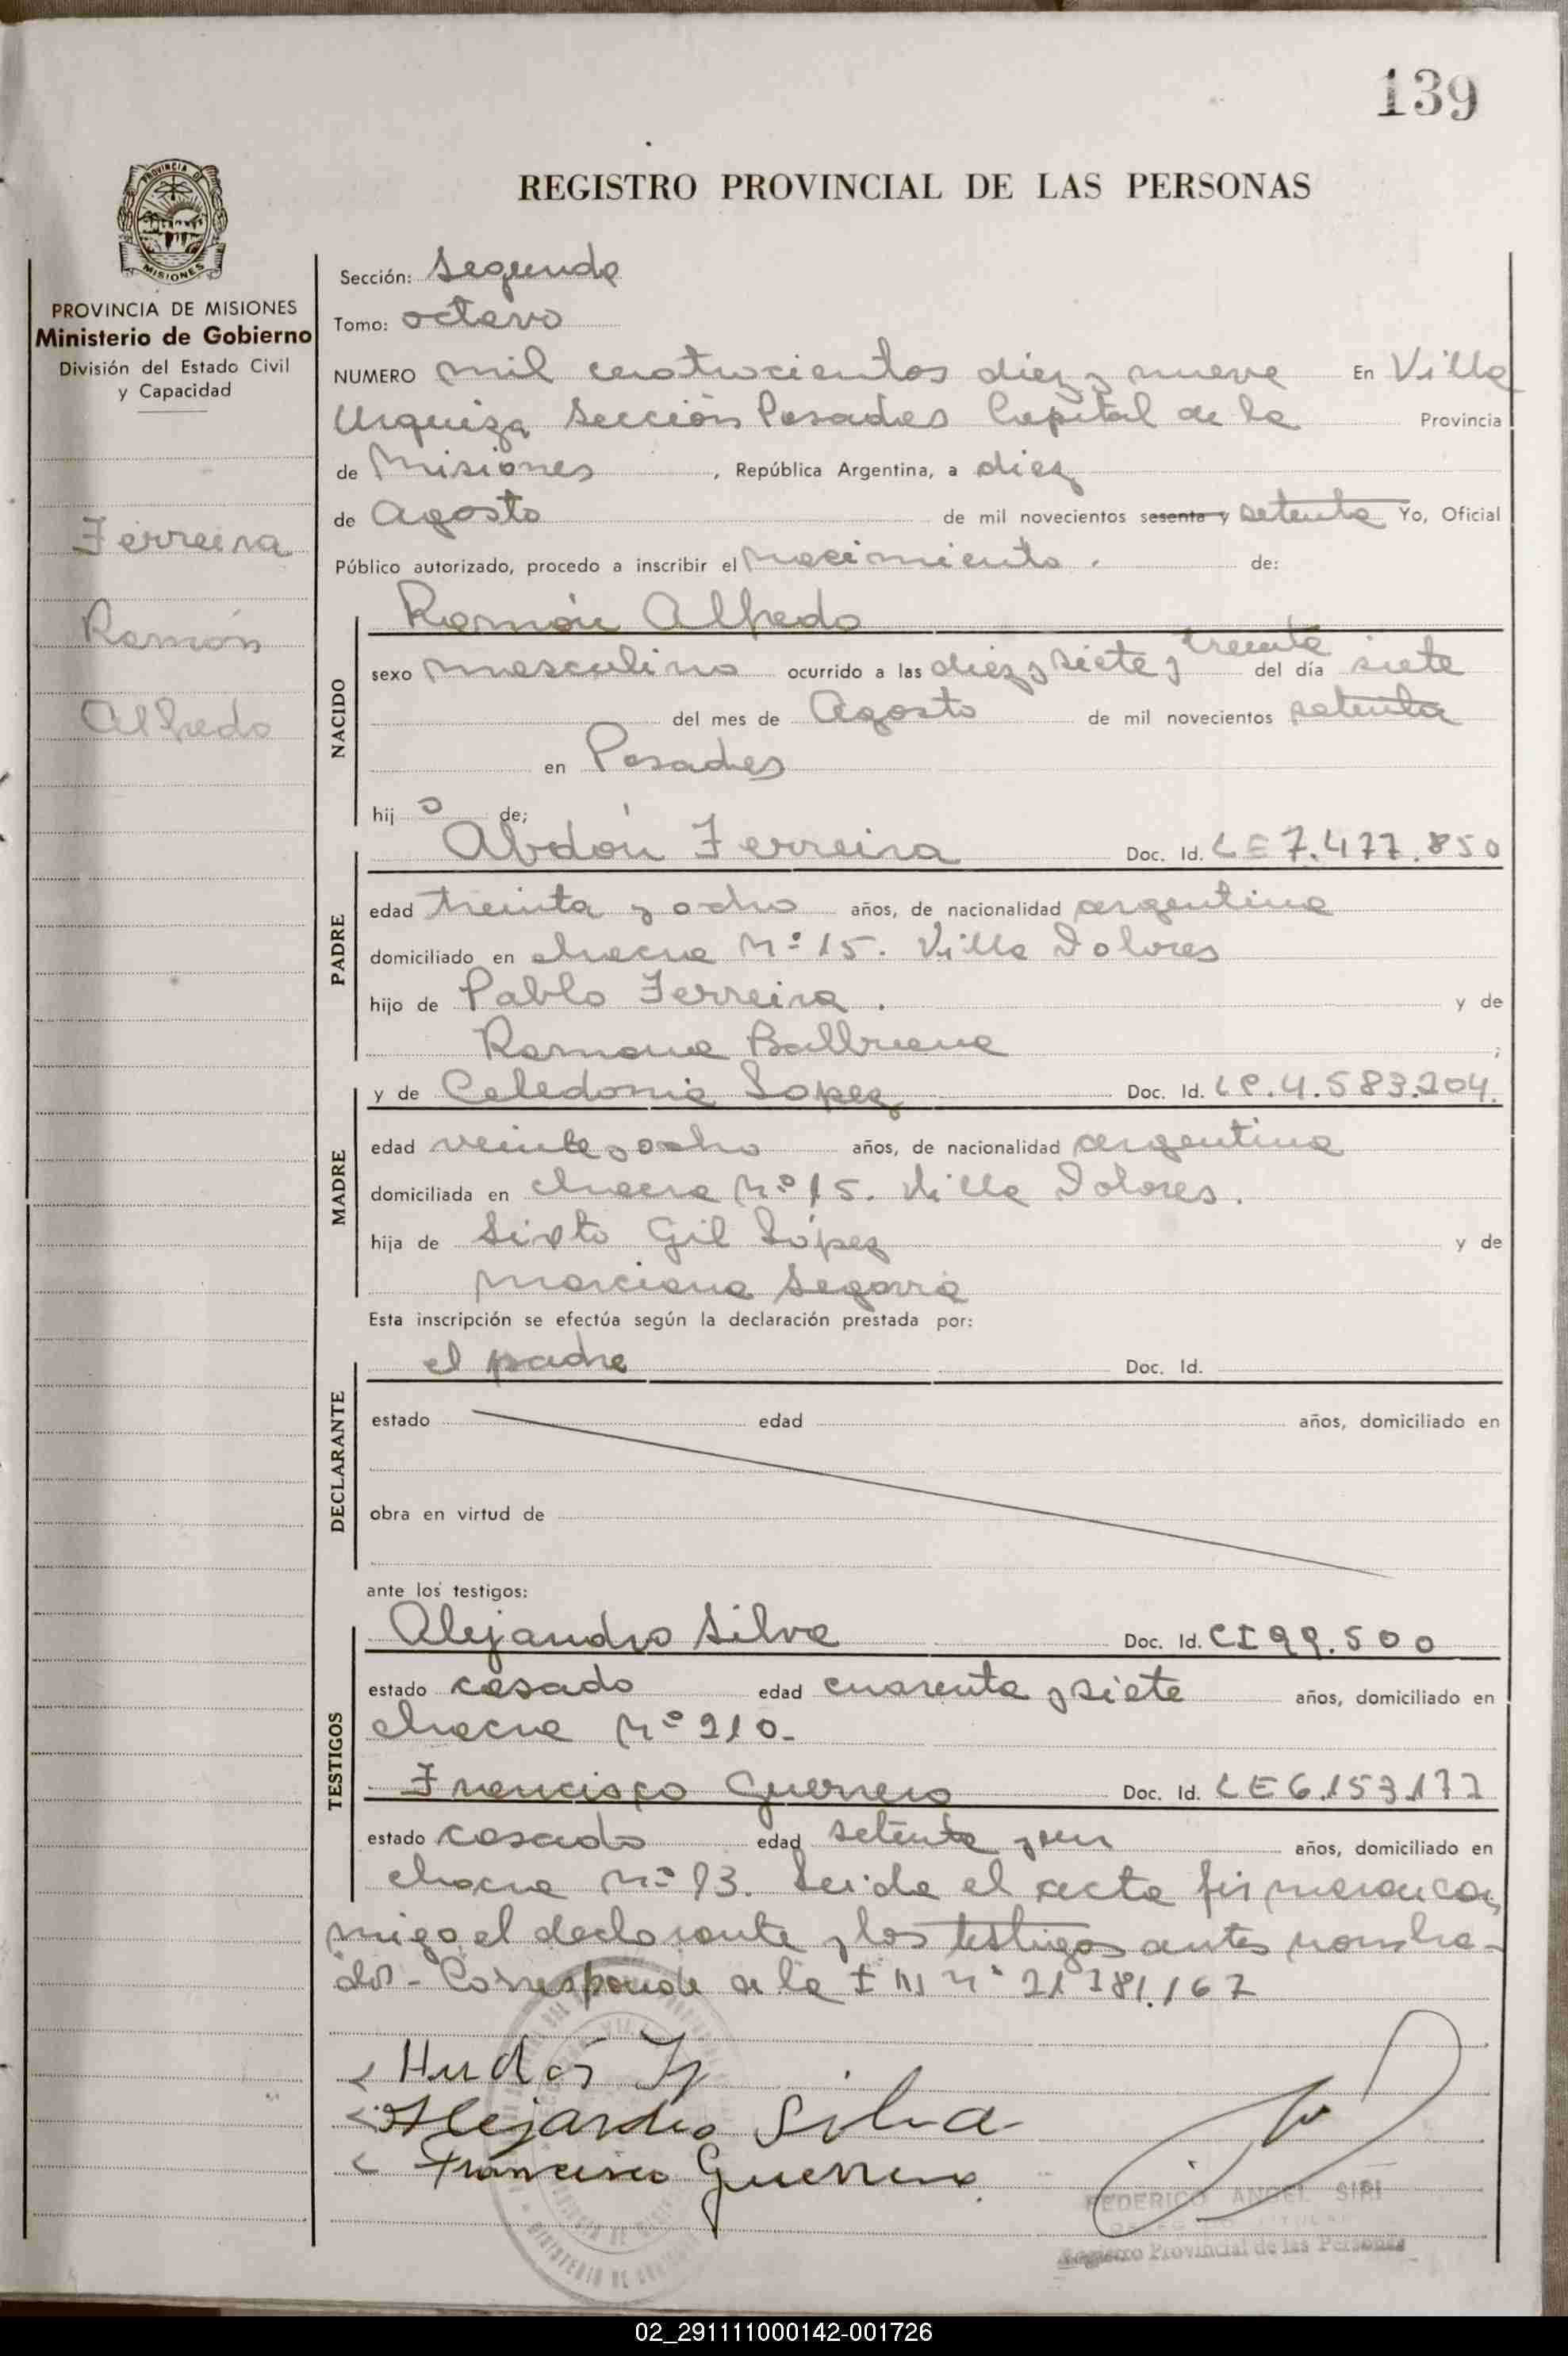 139
REGISTRO PROVINCIAL DE LAS PERSONAS
PROVINCIA DE MISIONES
PROVINCIA DE MISIONES
Ministerio de Gobierno
División del Estado Civil
y Capacidad
Ferreira
Ramón
Alfredo
Sección: Segunda
Tomo: octavo
NUMERO mil cuatrocientos diez y nueve En Villa
Urquiza Sección Posadas Capital de la Provincia
de Misiones, República Argentina, a diez
de Agosto de mil novecientos sesenta y setenta Yo, Oficial
Público autorizado, procedo a inscribir el nacimiento. de:
Ramón Alfredo
NACIDO
sexo masculino ocurrido a las diez y siete y treinta del día siete
del mes de Agosto de mil novecientos setenta
en Posadas
hijo de;
Abdón Ferreira Doc. Id. LE 7.477.850
PADRE
edad treinta y ocho años, de nacionalidad argentina
domiciliado en chacra Nº 15. Villa Dolores
hijo de Pablo Ferreira. y de
Ramona Balbuena ;
y de Celedonia Lopez Doc. Id. LC.4.583.204.
MADRE
edad veinte y ocho años, de nacionalidad argentina
domiciliada en chacra Nº 15. Villa Dolores.
hija de Sixto Gil López y de
Marciana Segovia
Esta inscripción se efectúa según la declaración prestada por:
el padre Doc. Id.
DECLARANTE
estado edad años, domiciliado en
obra en virtud de
ante los testigos:
Alejandro Silva Doc. Id. CI 99.500
TESTIGOS
estado casado edad cuarenta y siete años, domiciliado en
chacra Nº 210-
Francisco Guerrero Doc. Id. LE 6.153.177
estado casado edad setenta y un años, domiciliado en
chacra Nº 93. Leida el acta firman con
migo el declarante y los testigos antes nombra-
dos - Corresponde a la I M Nº 21.781.167
Alejandro Silva
Francisco Guerrero
FEDERICO ANGEL SIRI
Registro Provincial de las Personas
02_291111000142-001726